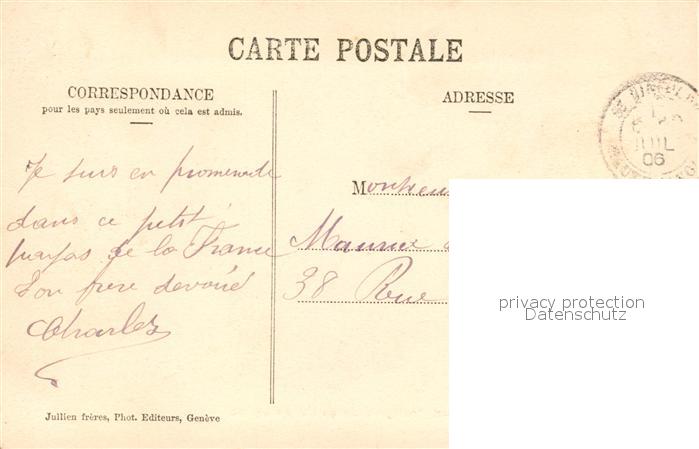 CARTE POSTALE
CORRESPONDANCE
pour les pays seulement où cela est admis.
ADRESSE
JUIL
06
Je suis en promenade
dans ce petit
pays de la France
Ton frere devoué
Charles
Monsieur
Maurice
38 Rue
privacy protection
Datenschutz
Jullien frères, Phot. Editeurs, Genève